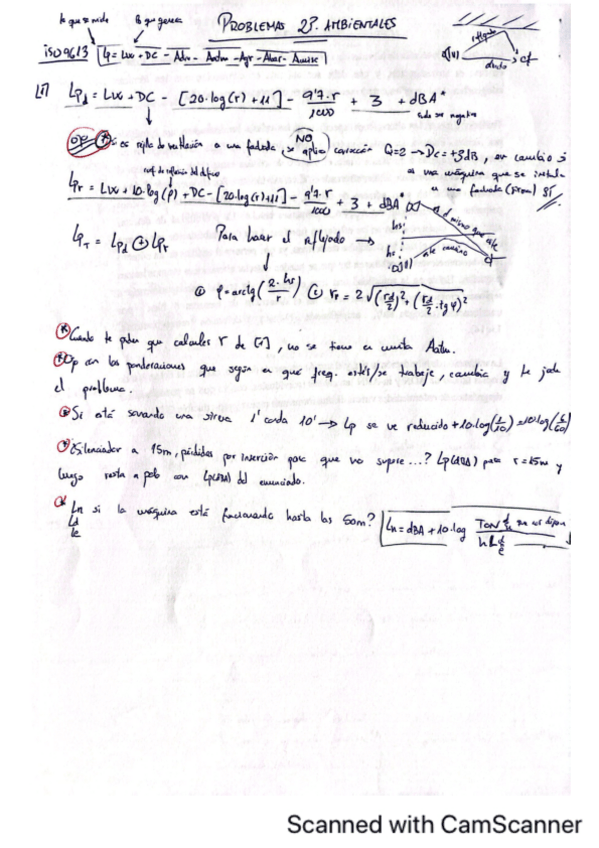 lo que se mide lo que genera
PROBLEMAS 2P. AMBIENTALES
ISO 9613 Lp = Lw + DC - Adiv - Aatm - Agr - Abar - Amisc
reflejado
directo
Lpd = Lw + DC - [20·log(r) + 11] - 9'7·r/1000 + 3 + dBA*
suele ser negativo
OJO * : es regla de reflexión a una fachada, NO se aplica corrección Q=2 → Dc = +3dB, en cambio si
a una máquina que se instala
a una fachada SÍ
coef. de reflexión del
Lpr = Lw + 10·log(ρ) + DC - [20·log(r)+11] - 9'7·r/1000 + 3 + dBA*
LpT = Lpd ⊕ Lpr Para hacer el reflejado →
φ = arctg(2·hs/r) rr = 2√((rd/2)² + (rd/2·tgφ)²)
Cuando te piden que calcules r de [ ], no se tiene en cuenta Aatm.
Ojo con las ponderaciones que según en qué freq. estés/se trabaje, cambia y te jode
el problema.
Si está sonando una sirena 1' cada 10' → Lp se ve reducido +10·log(1/10) = 10·log(6/60)
Silenciador a 15m, pérdidas por inserción para que no supere...? Lp(dBA) para r = 15m y
luego resta a pelo con Lp(dBA) del enunciado.
Ln si la máquina está funcionando hasta las 50m? Ln = dBA + 10·log TON
Ld
Le
Scanned with CamScanner